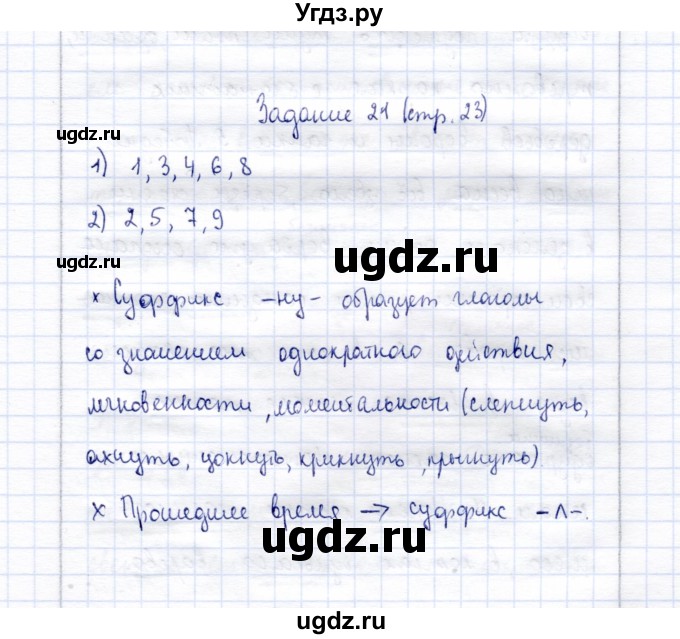 Угдз.ру
Задание 21 (стр. 23)
ugdz.ru
ugdz.ru
1) 1, 3, 4, 6, 8
2) 2, 5, 7, 9
ugdz.ru
ugdz.ru
× Суффикс -ну- образует глаголы
со значением однократного действия,
мгновенности, моментальности (слепнуть,
ахнуть, цокнуть, крикнуть, прыгнуть)
× Прошедшее время → суффикс -л-.
ugdz.ru
ugdz.ru